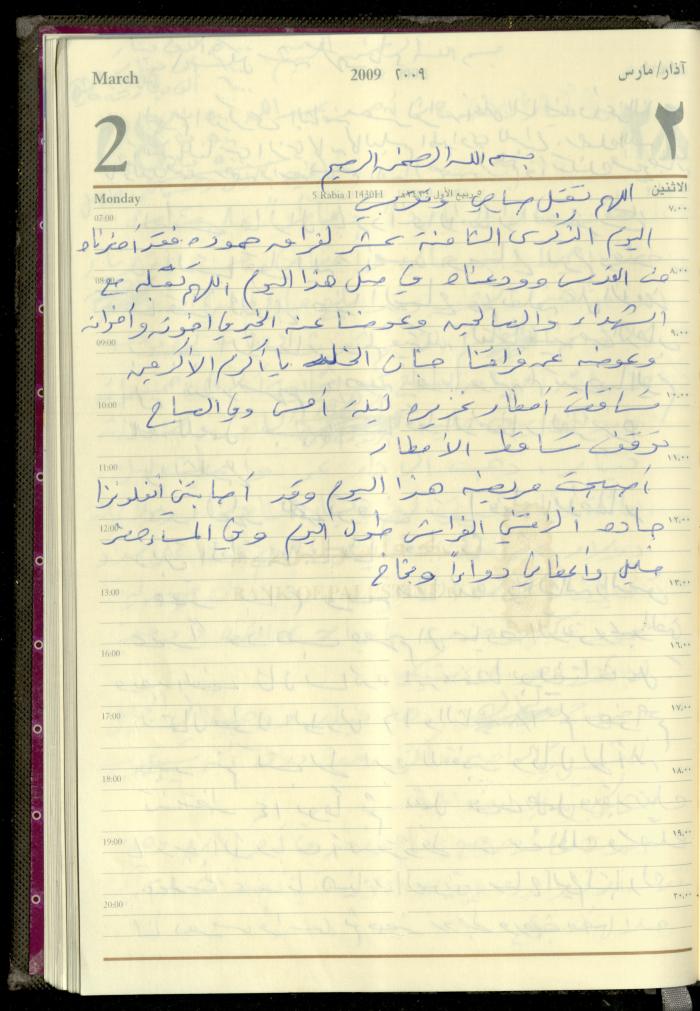 March 2009 ٢٠٠٩ آذار/مارس
2 ٢
بسم الله الرحمن الرحيم
Monday 5 Rabia I 1430H الاثنين
اللهم تقبل صيامي
07:00 ٧,٠٠
اليوم الذكرى الثامنة عشر لفراق حموده فقد أحضرناه
08:00 ٨,٠٠
من القدس وودعناه في مثل هذا اليوم اللهم تقبله مع
الشهداء والصالحين وعوضنا عنه الخير في اخوته وأخواته
09:00 ٩,٠٠
وعوضه عن فراقنا جنان الخلد يا أكرم الأكرمين
10:00 ١٠,٠٠
تساقطت أمطار غزيره ليلة أمس وفي الصباح
توقف تساقط الأمطار
11:00 ١١,٠٠
أصبحت مريضه هذا اليوم وقد أصابتني أنفلونزا
12:00 ١٢,٠٠
حاده ألزمتني الفراش طول اليوم وفي المساء حضر
خليل وأعطاني دواءاً
13:00 ١٣,٠٠
16:00 ١٦,٠٠
17:00 ١٧,٠٠
18:00 ١٨,٠٠
19:00 ١٩,٠٠
20:00 ٢٠,٠٠